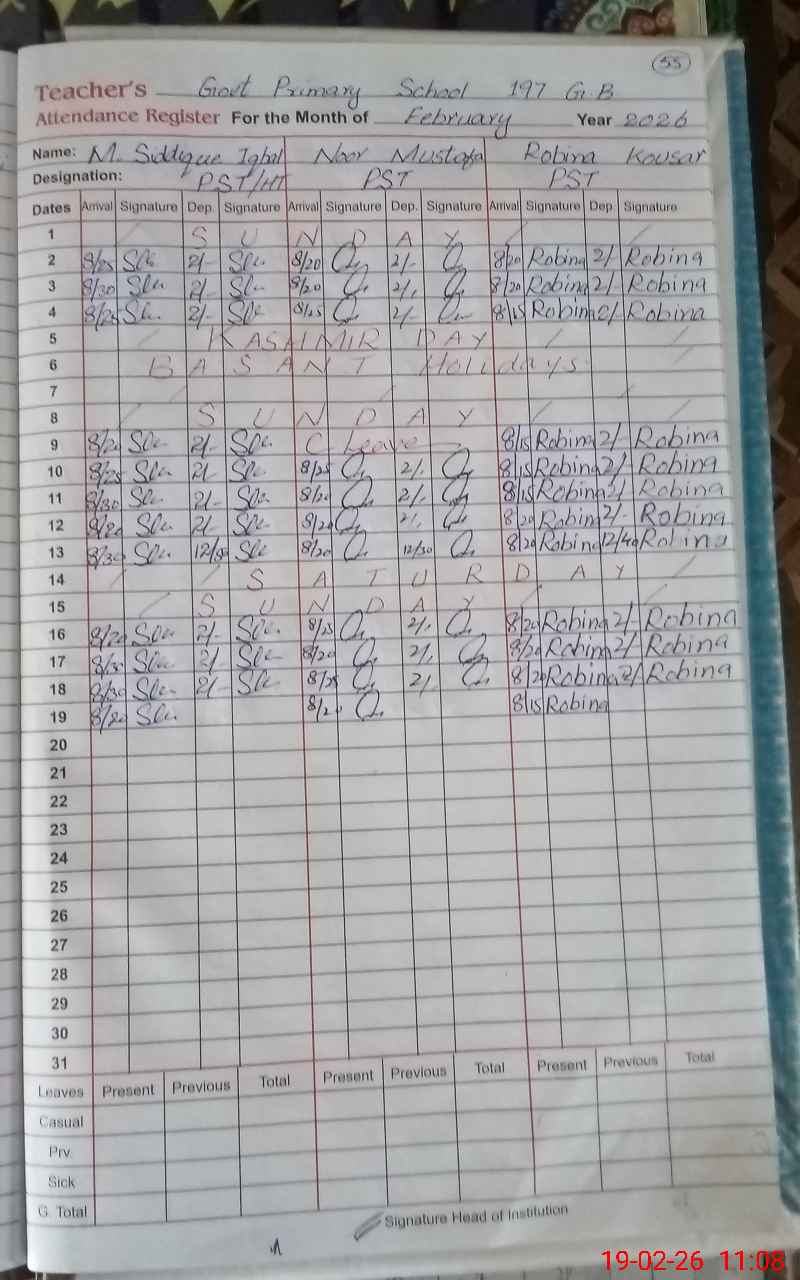 55
Teacher's Govt Primary School 197 G.B
Attendance Register For the Month of February Year 2026
Name: M. Siddique Iqbal Noor Mustafa Robina Kousar
Designation: PST/HT PST PST
Dates Arrival Signature Dep. Signature Arrival Signature Dep. Signature Arrival Signature Dep Signature
1 SUNDAY
2 8/25 2/- 8/20 2/- 8/20 Robina 2/- Robina
3 8/30 2/- 8/20 2/- 8/20 Robina 2/- Robina
4 8/25 2/- 8/25 2/- 8/15 Robina 2/- Robina
5 KASHMIR DAY
6 BASANT Holidays
7
8 SUNDAY
9 8/20 2/- C. Leave 8/15 Robina 2/- Robina
10 8/25 2/- 8/25 2/- 8/15 Robina 2/- Robina
11 8/30 2/- 8/20 2/- 8/15 Robina 2/ Robina
12 8/20 2/- 8/20 2/- 8/20 Robina 2/- Robina
13 8/30 12/30 8/20 12/30 8/20 Robina 12/40 Robina
14 SATURDAY
15 SUNDAY
16 8/20 2/- 8/25 2/- 8/20 Robina 2/- Robina
17 8/30 2/- 8/20 2/- 8/20 Robina 2/ Robina
18 8/30 2/- 8/25 2/- 8/20 Robina 2/ Robina
19 8/20 8/20 8/15 Robina
20
21
22
23
24
25
26
27
28
29
30
31
Leaves Present Previous Total Present Previous Total Present Previous Total
Casual
Prv.
Sick
G. Total
Signature Head of Institution
19-02-26 11:08